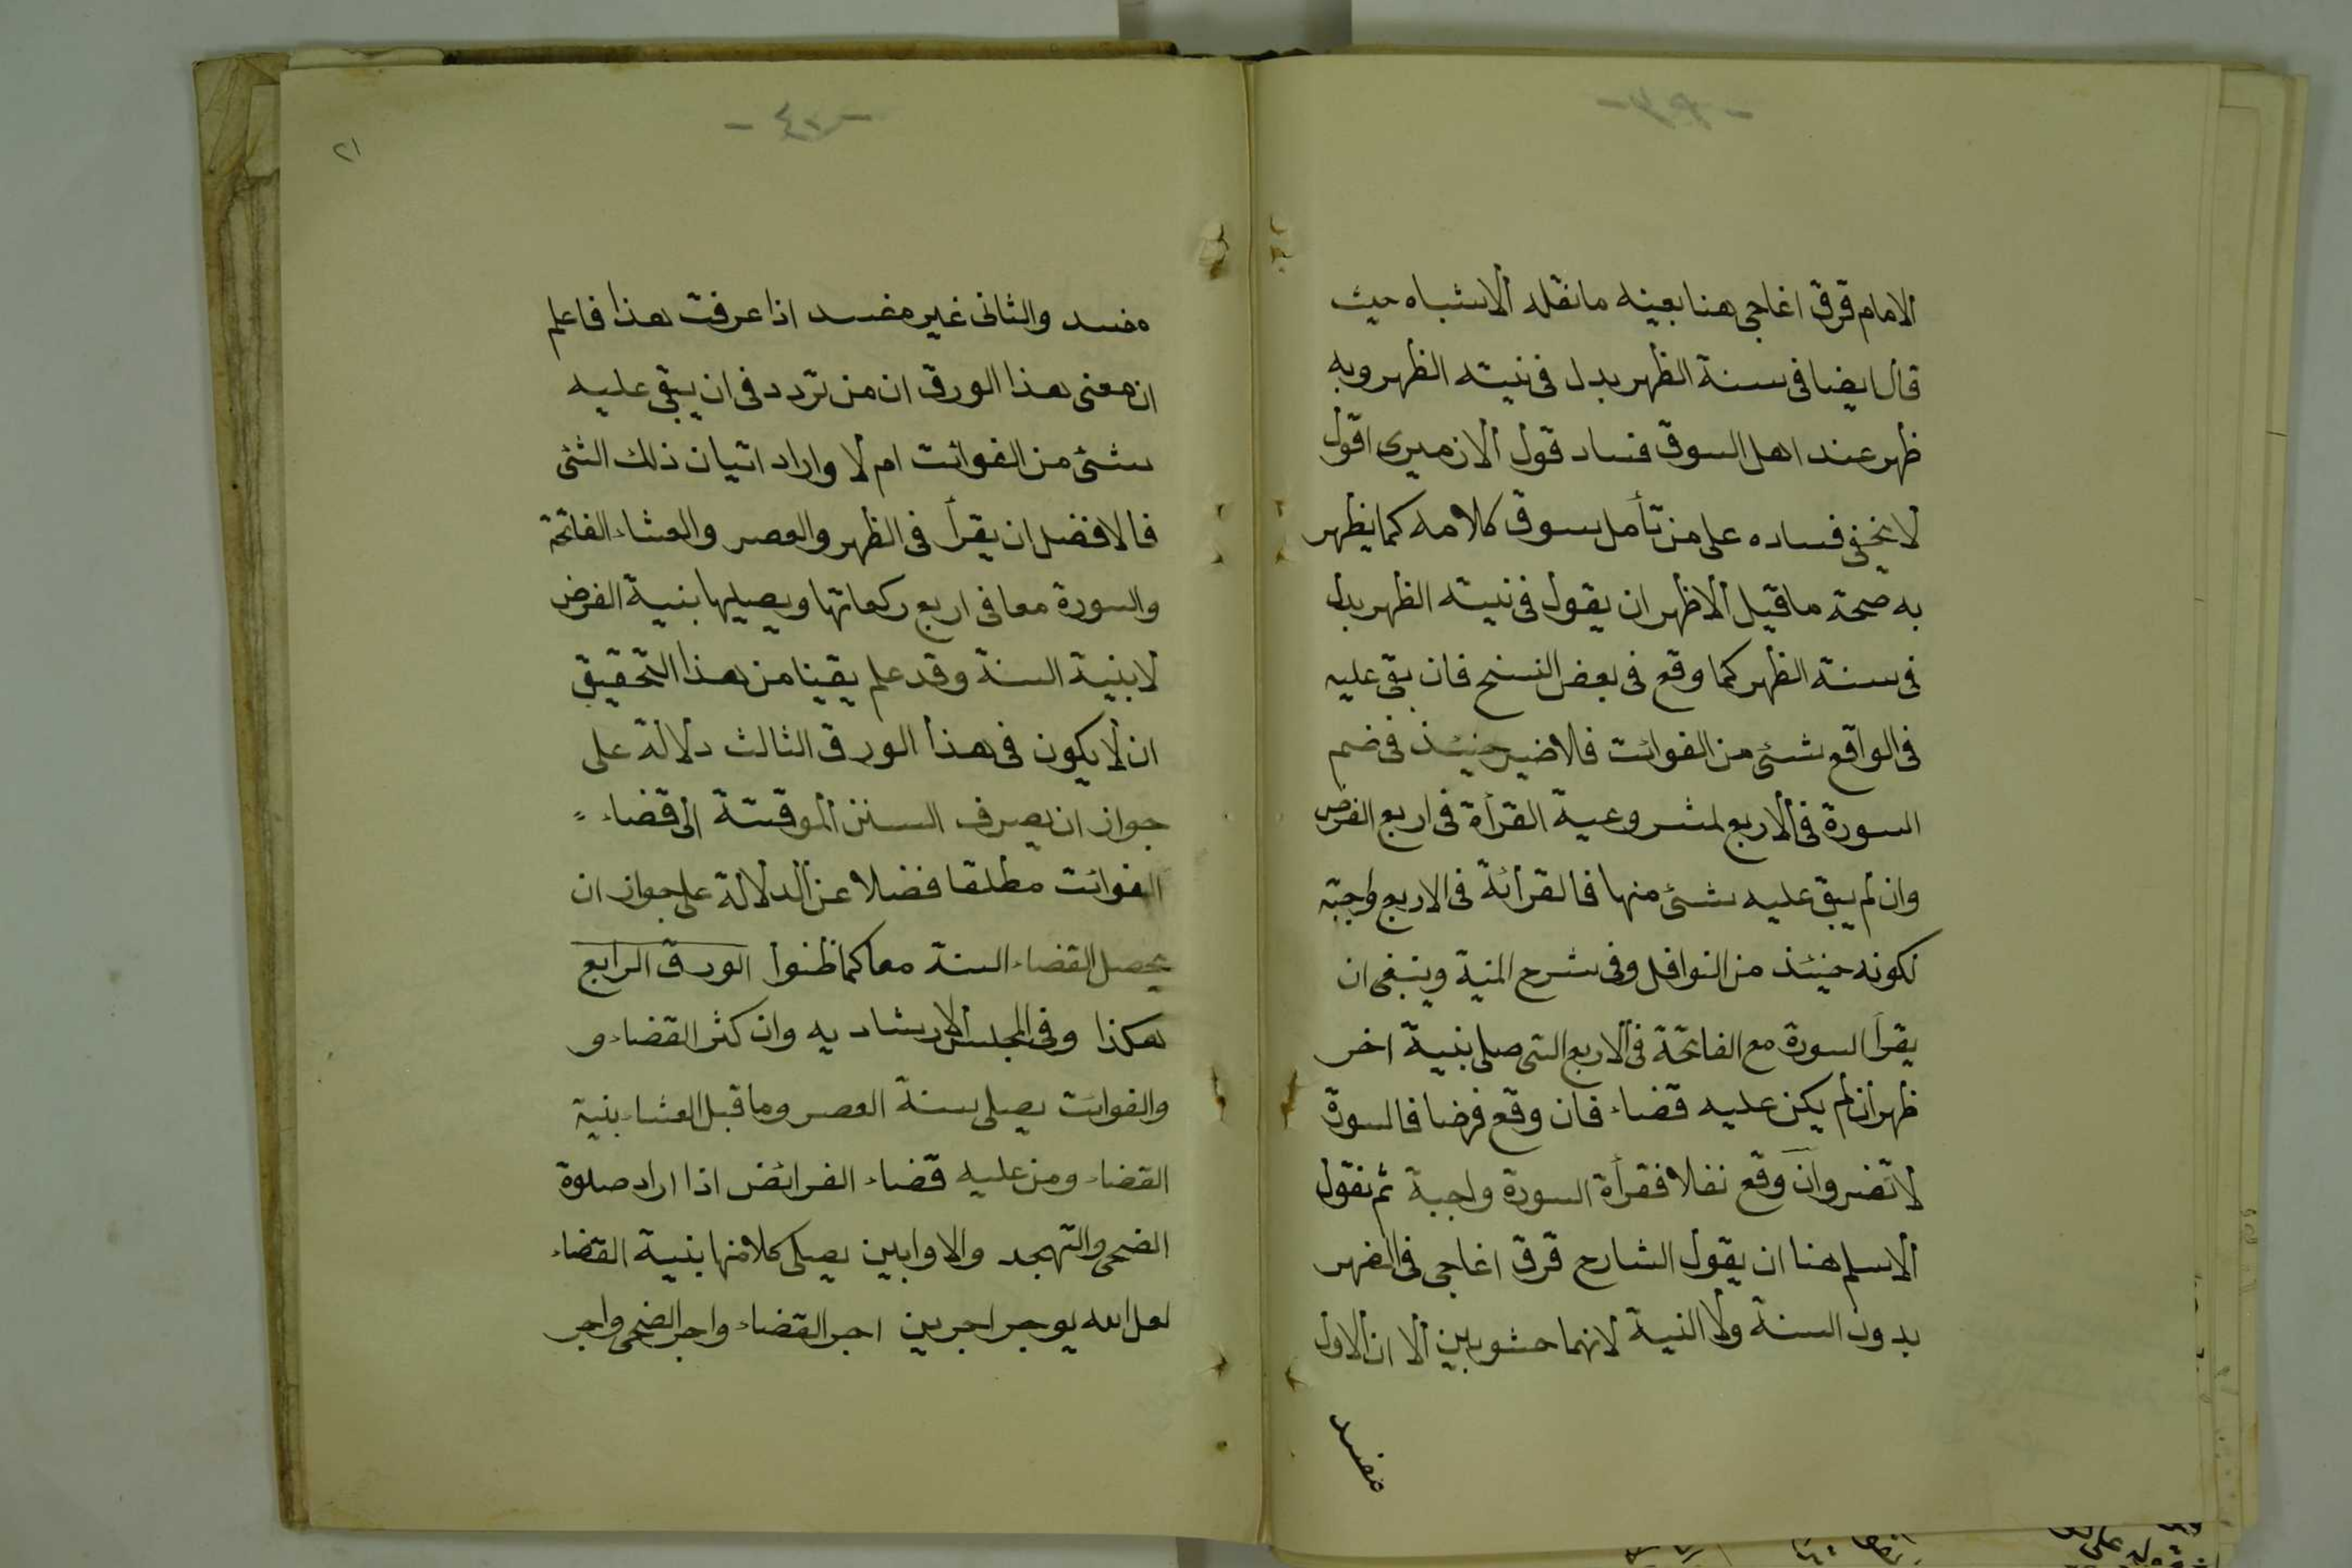 الامام قرق اغاجى هنا بعينه ما نقله الاشباه حيث
قال ايضا فى سنة الظهر بدل فى نيته الظهر وبه
ظهر عند اهل السوق فساد قول الازميرى اقول
لا يخفى فساده على من تأمل سوق كلامه كما يظهر
به صحة ما قيل الاظهر ان يقول فى نيته الظهر بدل
فى سنة الظهر كما وقع فى بعض النسخ فان بقى عليه
فى الواقع شئ من الفوائت فلا ضير حينئذ فى ضم
السورة فى الاربع لمشروعية القرأة فى اربع الفرض
وان لم يبق عليه شئ منها فالقرائة فى الاربع واجبة
لكونه حينئذ من النوافل وفى شرح المنية وينبغى ان
يقرأ السورة مع الفاتحة فى الاربع التى صلى بنية اخر
ظهر ان لم يكن عليه قضاء فان وقع فرضا فالسورة
لا تضر وان وقع نفلا فقرأة السورة واجبة ثم نقول
الاسلم هنا ان يقول الشارح قرق اغاجى فى الضهر
بدون السنة ولا النية لانهما حشويين الا ان الاول
مفسد
- ٤٠ -
٢١
مفسد والثانى غير مفسد اذا عرفت هذا فاعلم
ان معنى هذا الورق ان من تردد فى ان يبقى عليه
شئ من الفوائت ام لا واراد اتيان ذلك الشئ
فالافضل ان يقرأ فى الظهر والعصر والعشاء الفاتحة
والسورة معا فى اربع ركعاتها ويصليها بنية الفرض
لا بنية السنة وقد علم يقينا من هذا التحقيق
ان لا يكون فى هذا الورق الثالث دلالة على
جواز ان يصرف السنن الموقتة الى قضاء
الفوائت مطلقا فضلا عن الدلالة على جواز ان
يحصل القضاء السنة معا كما ظنوا الورق الرابع
هكذا وفى المجلس الارشاديه وان كثر القضاء و
والفوائت يصلى سنة العصر وما قبل العشاء بنية
القضاء ومن عليه قضاء الفرائض اذا اراد صلوة
الضحى والتهجد والاوابين يصلى كلا منها بنية القضاء
لعل الله يوجر اجرين اجر القضاء واجر الضحى واجر